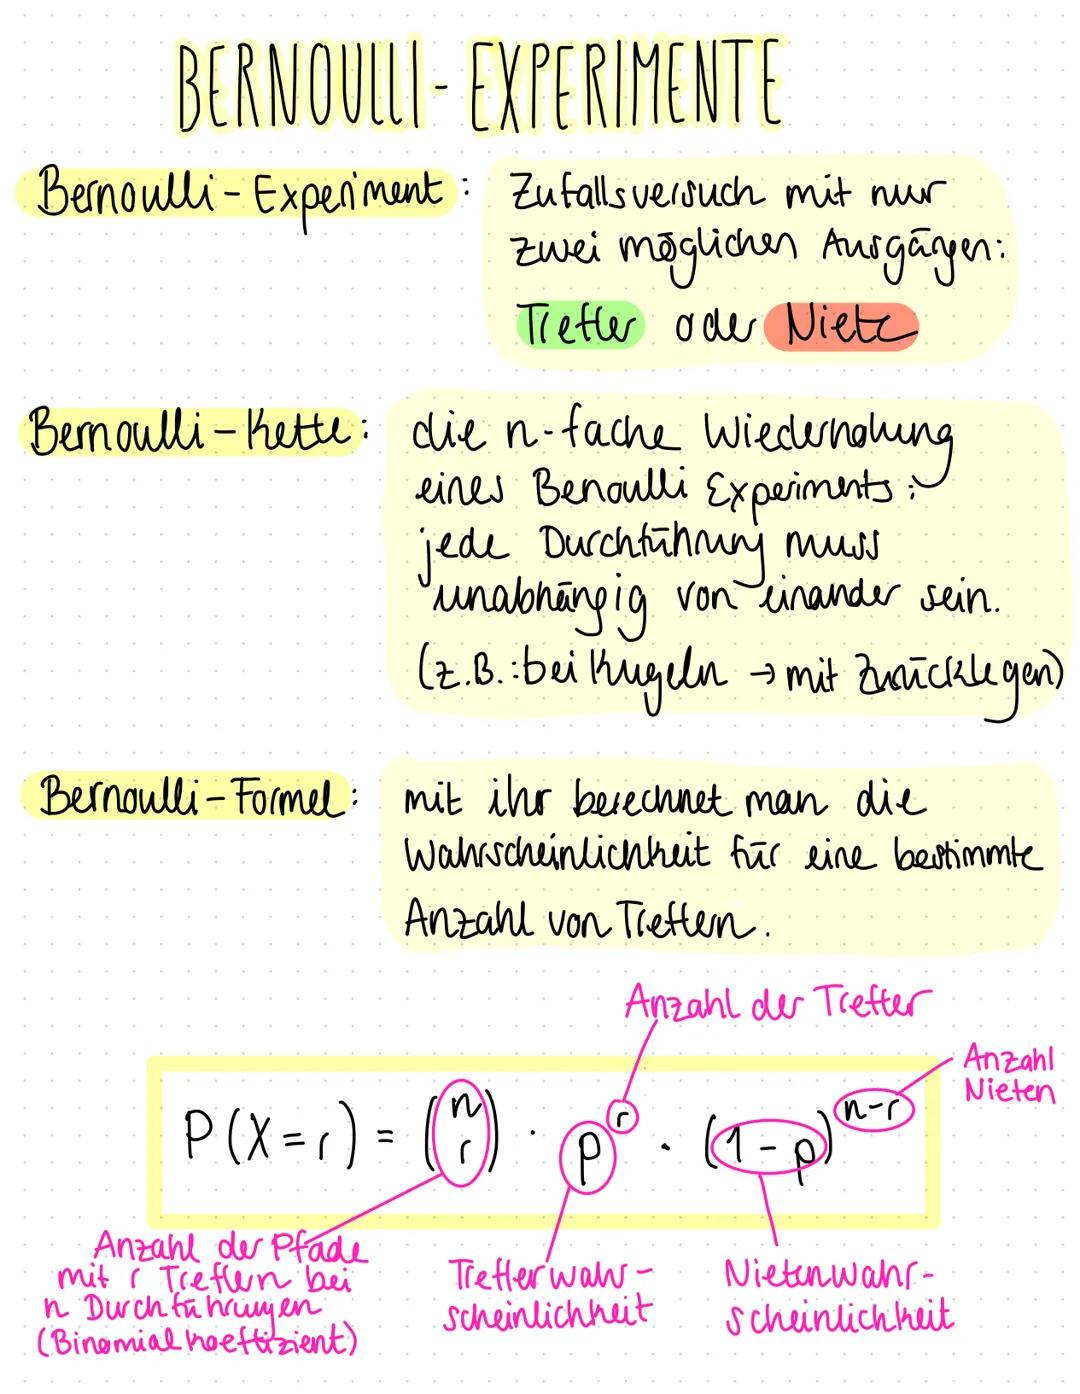 BERNOULLI-EXPERIMENTE
Bernoulli-Experiment: Zufallsversuch mit nur
zwei möglichen Ausgängen:
Treffer oder Niete
Bernoulli-Kette: die n-fache Wiederholung
eines Benoulli Experiments:
jede Durchführung muss
unabhängig von einander sein.
(z.B.: bei Kugeln → mit Zurücklegen)
Bernoulli-Formel: mit ihr berechnet man die
Wahrscheinlichkeit für eine bestimmte
Anzahl von Treffern.
Anzahl der Treffer
Anzahl
Nieten
P(X=r) = (n r) · p^r · (1-p)^n-r
Anzahl der Pfade
mit r Treffern bei
n Durchführungen
(Binomialkoeffizient)
Trefferwahr-
scheinlichkeit
Nietenwahr-
scheinlichkeit